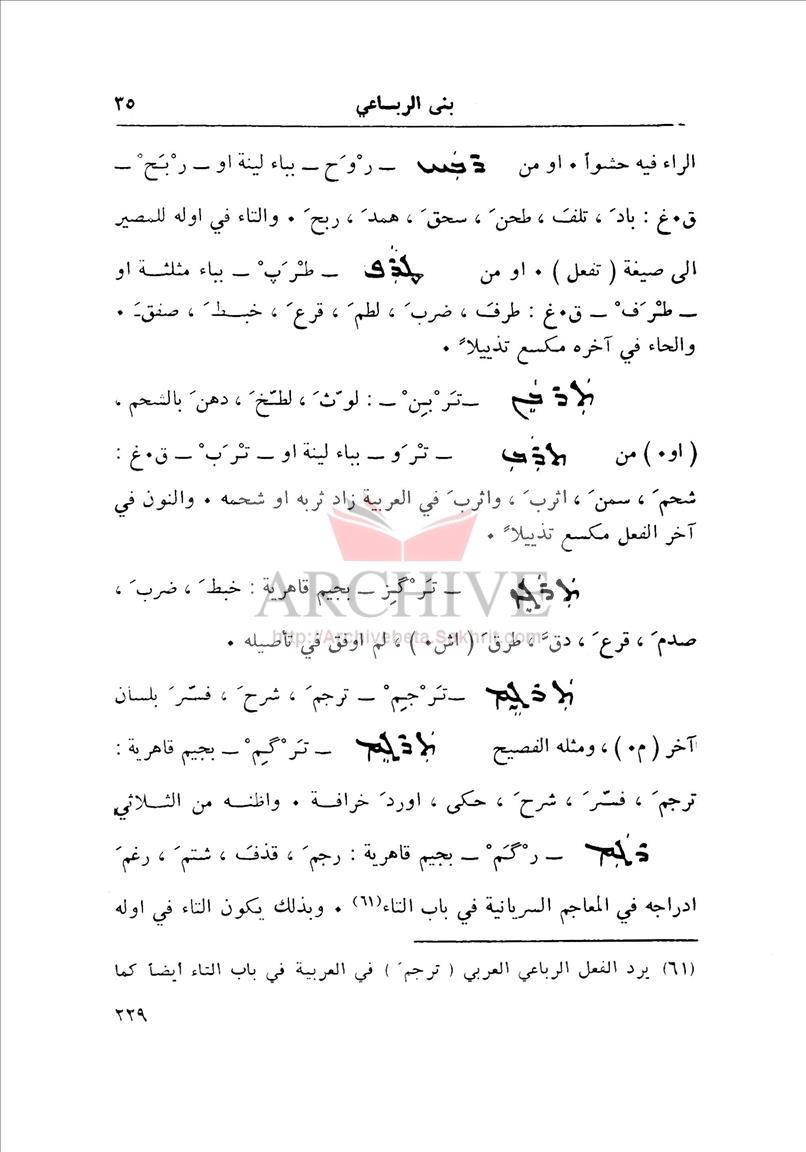 بنى الربـاعي ٣٥
الراء فيه حشواً ٠ او من ܕܒܚ ــ رْوَح ــ بباء لينة او ــ رْبَحْ ــ
ق٠غ : بادَ ، تلفَ ، طحنَ ، سحقَ ، همدَ ، ربحَ ٠ والتاء في اوله للمصير
الى صيغة ( تفعل ) ٠ او من ܛܪܦ ــ طْرَپْ ــ بباء مثلثـة او
ــ طْرَفْ ــ ق٠غ : طرفَ ، ضربَ ، لطمَ ، قرعَ ، خبـطَ ، صفقَ ٠
والحاء في آخره مكسع تذييلاً ٠
ܬܪܒܢ ــ تَرْبِنْ ــ : لوّثَ ، لطّخَ ، دهنَ بالشحم ٠
( او٠ ) من ܬܪܒ ــ تْرَو ــ بباء لينة او ــ تْرَبْ ــ ق٠غ :
شحمَ ، سمنَ ، اثربَ ، واثربَ في العربية زاد ثربه او شحمه ٠ والنون في
آخر الفعل مكسع تذييلاً ٠
ــ تَرْگِز ــ بجيم قاهرية : خبطَ ، ضربَ ،
صدمَ ، قرعَ ، دقَّ ، طرقَ ( اش٠ ) ، لم اوفق في تأصيله ٠
ܬܪܓܡ ــ تَرْجِمْ ــ ترجمَ ، شرحَ ، فسّرَ بلسان
آخر ( م٠ ) ، ومثله الفصيح ܬܪܓܡ ــ تَرْگِمْ ــ بجيم قاهرية :
ترجمَ ، فسّرَ ، شرحَ ، حكى ، اوردَ خرافـة ٠ واظنـه من الثـلاثي
ܪܓܡ ــ رْگَمْ ــ بجيم قاهرية : رجمَ ، قذفَ ، شتمَ ، رغمَ
ادراجه في المعاجم السريانية في باب التاء(٦١) ٠ وبذلك يكون التاء في اوله
(٦١) يرد الفعل الرباعي العربي ( ترجمَ ) في العربية في باب التاء أيضاً كما
٢٢٩
ARCHIVE
http://Archivebeta.Sakhrit.com